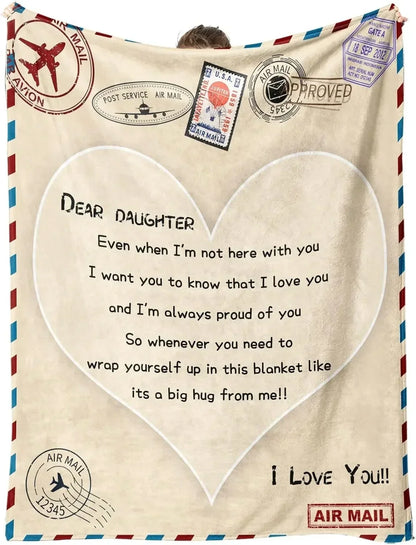 AIR MAIL
AVION
POST SERVICE AIR MAIL
U.S.A.
JUPITER
LAFAYETTE, IND.
1859-1959
7¢
AIRMAIL
AIR MAIL
12345
PPROVED
GATE A
18 SEP 2012
DEAR DAUGHTER
Even when I'm not here with you
I want you to know that I love you
and I'm always proud of you
So whenever you need to
wrap yourself up in this blanket like
its a big hug from me!!
I LOVE YOU!!
AIR MAIL
12345
AIR MAIL